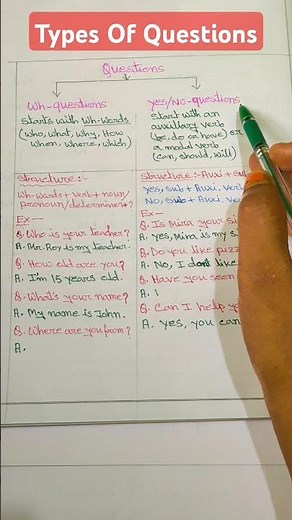 Types Of Questions
Questions
Wh-questions
starts with Wh-Words
(who, what, why, How
when, where, which)
Structure:-
Wh-words + verb + noun/
pronoun/determiner+?
Ex-
Q. Who is your teacher?
A. Mr. Roy is my teacher.
Q. How old are you?
A. I'm 15 years old.
Q. What's your name?
A. My name is John.
Q. Where are you from?
A.
Yes/No-questions
start with an
auxillary verb
(be, do or have) or
a modal verb
(can, should, will)
Structure:- Auxi + su
Yes, sub + Auxi. Verb
No, sub + Aux. ve
Ex-
Q. Is Mira your si
A. Yes, Mira is my s
Q. Do you like pizz
A. No, I don't like
Q. Have you seen
A. 
Q. Can I help yo
A. Yes, you can